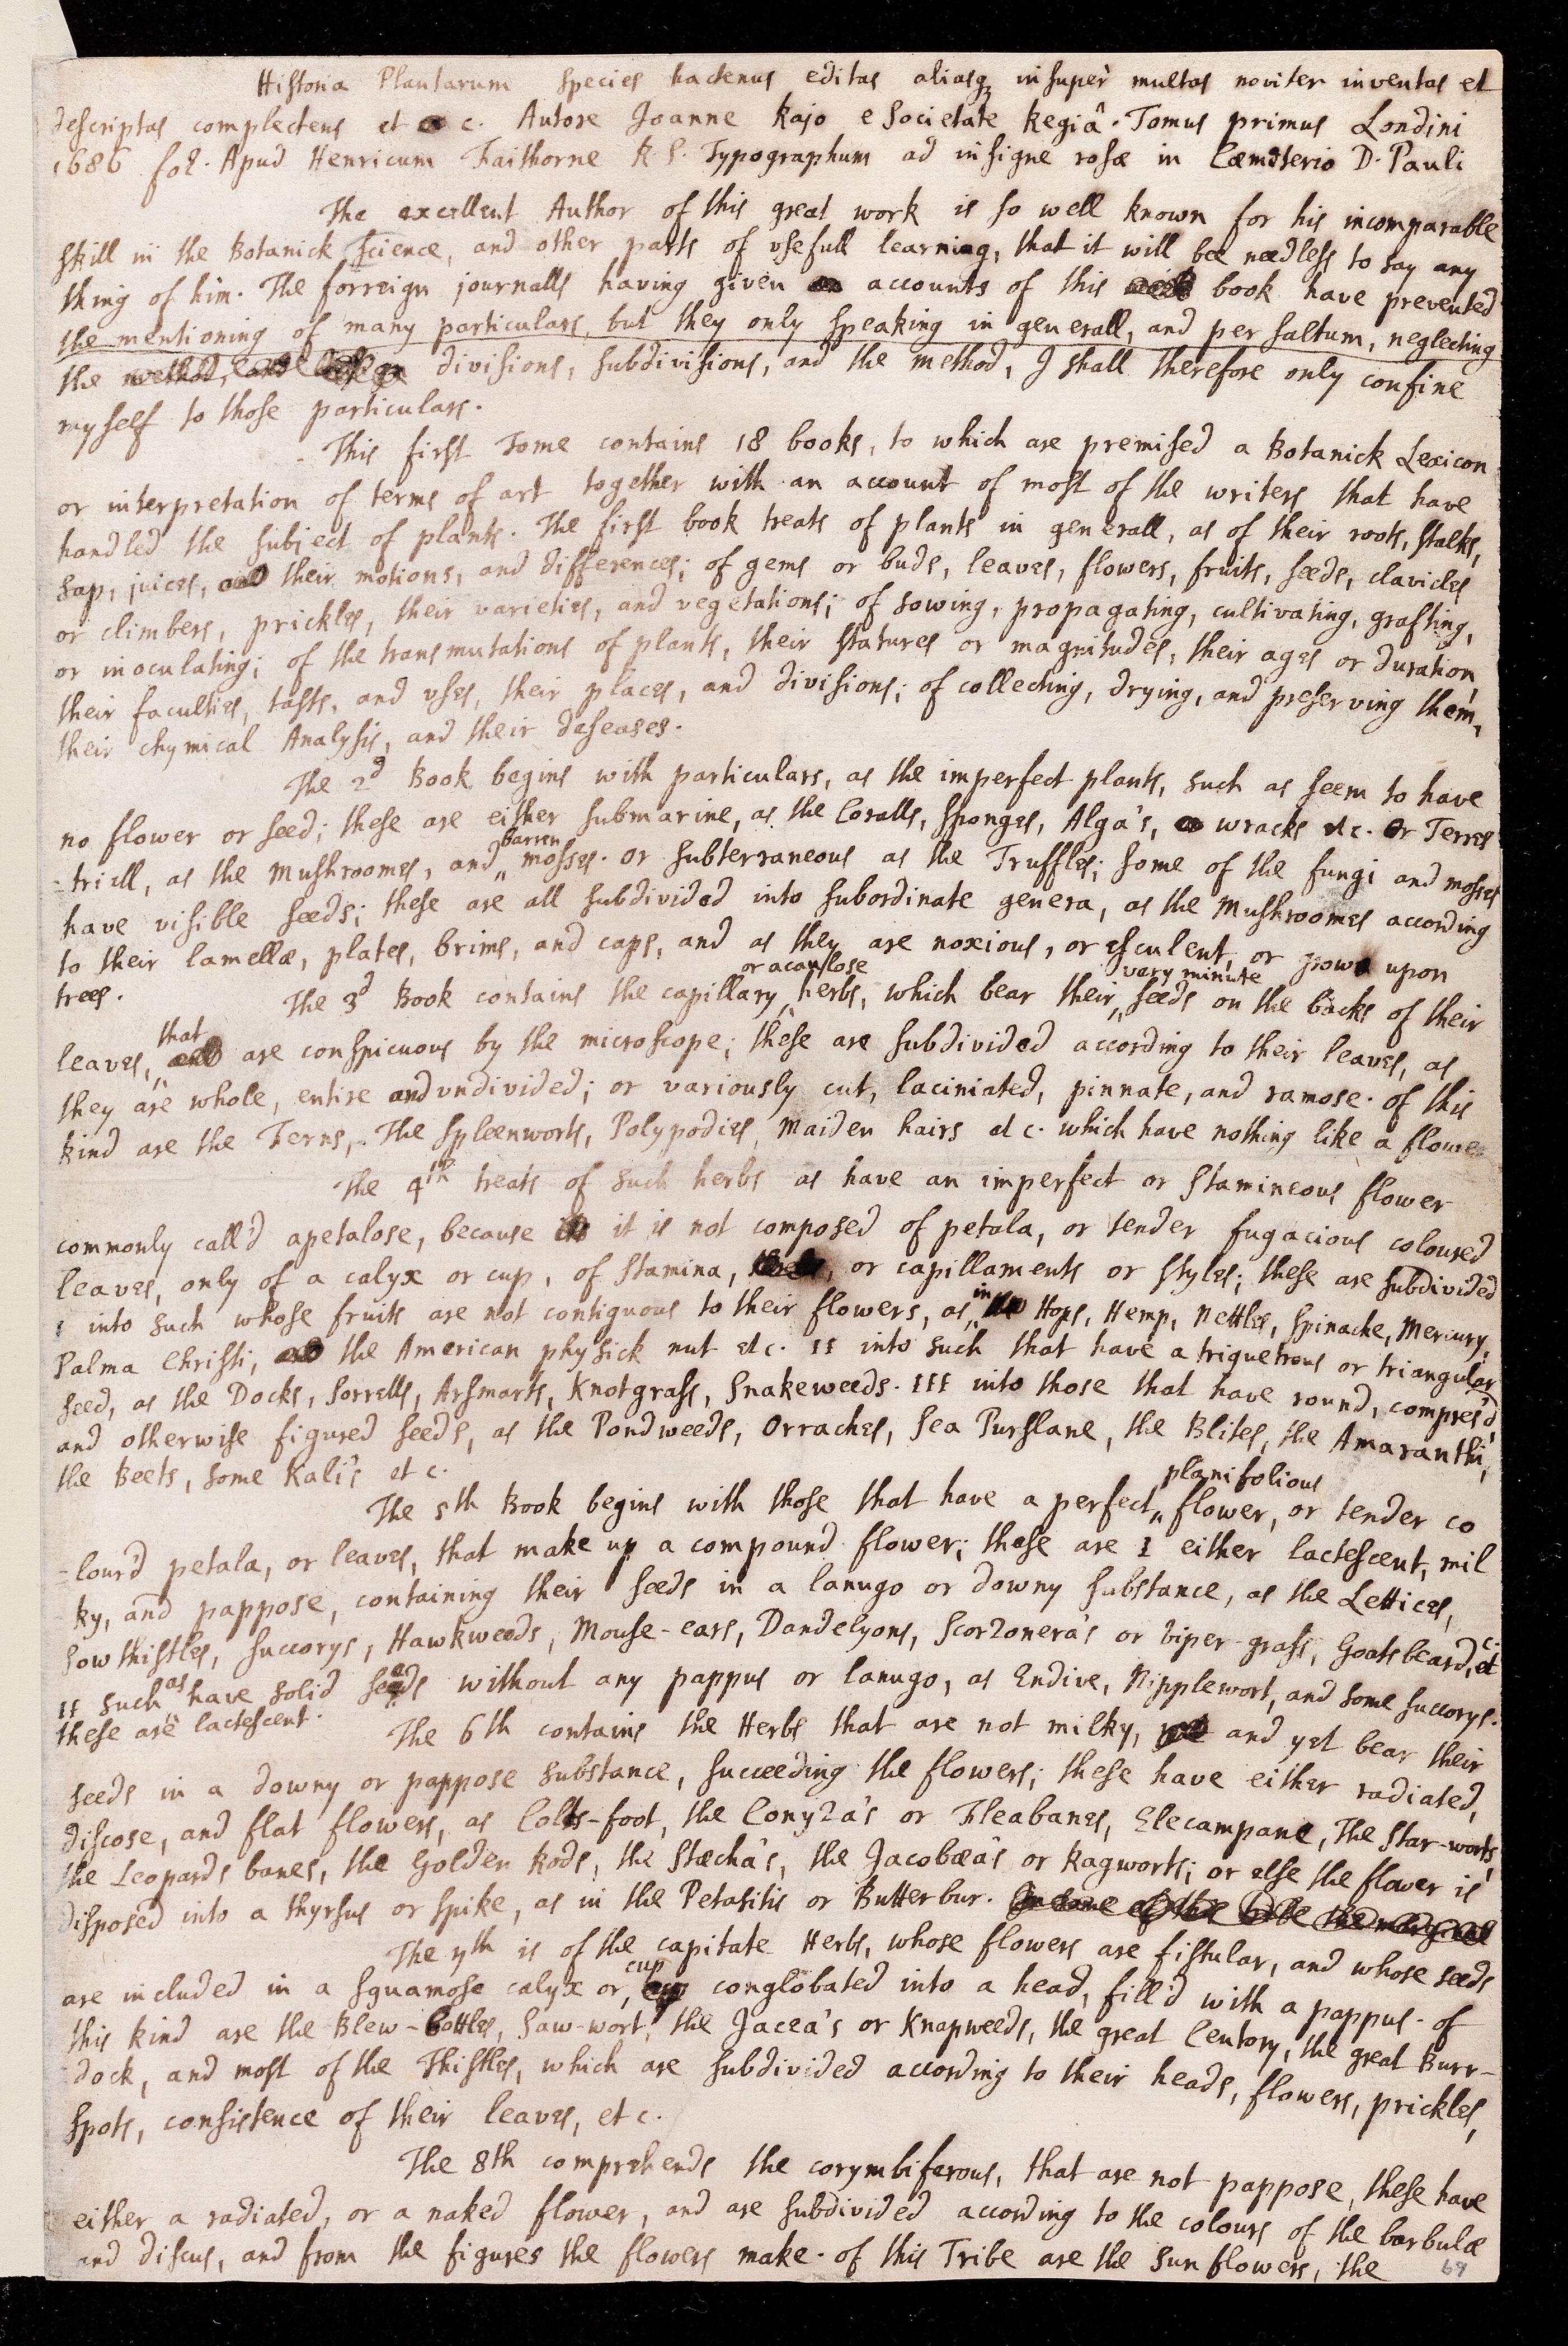 Historia Plantarum species hactenus editas aliasq insuper multas noviter inventas et
descriptas complectens et c. Autore Joanne Rajo e Societate Regiâ. Tomus primus Londini
1686 fol. Apud Henricum Faithorne R S. Typographum ad insigne rosæ in Cæmiterio D. Pauli
The excellent Author of this great work is so well known for his incomparable
skill in the Botanick science, and other parts of usefull learning, that it will bee needless to say any
thing of him. The forreign journalls having given accounts of this book have prevented
the mentioning of many particulars, but they only speaking in generall, and per saltum, neglecting
the method, divisions, subdivisions, and the method, I shall therefore only confine
my self to those particulars.
This first Tome contains 18 books, to which are premised a Botanick Lexicon
or interpretation of terms of art together with an account of most of the writers that have
handled the subject of plants. The first book treats of plants in generall, as of their roots, stalks,
sap, juices, and their motions, and differences; of gems or buds, leaves, flowers, fruits, seeds, clavicles
or climbers, prickles, their varieties, and vegetations; of sowing, propagating, cultivating, grafting,
or inoculating; of the transmutations of plants, their statures or magnitudes, their ages or duration,
their faculties, tasts, and uses, their places, and divisions; of collecting, drying, and preserving them,
their chymical Analysis, and their deseases.
The 2d Book begins with particulars, as the imperfect plants, such as seem to have
no flower or seed; these are either submarine, as the Coralls, Sponges, Alga's, wracks etc. or Terres
-triall, as the Mushroomes, and barren mosses. or subterraneous as the Truffles; some of the fungi and mosses
have visible seeds; these are all subdivided into subordinate genera, as the Mushroomes according
to their lamellæ, plates, brims, and caps, and as they are noxious, or esculent, or grow upon
trees.
The 3d Book contains the capillary or acaulose herbs, which bear their very minute seeds on the backs of their
leaves, that are conspicuous by the microscope; these are subdivided according to their leaves, as
they are whole, entire and undivided; or variously cut, laciniated, pinnate, and ramose. of this
kind are the Ferns, The Spleenworts, Polypodies, Maiden hairs etc. which have nothing like a flower
The 4th treats of such herbs as have an imperfect or stamineous flower
commonly call'd apetalose, because it is not composed of petala, or tender fugacious coloured
leaves, only of a calyx or cup, of stamina, or capillaments or styles; these are subdivided
I into such whose fruits are not contiguous to their flowers, as in Hops, Hemp, Nettles, Spinache, Mercury,
Palma Christi, and the American physick nut etc. II into such that have a triquetrous or triangular
seed, as the Docks, Sorrells, Arsmarts, Knotgrass, Snakeweeds. III into those that have round, compres'd,
and otherwise figured seeds, as the Pondweeds, Orraches, Sea Purslane, the Blites, the Amaranthi,
the Beets, some Kali's etc.
The 5th Book begins with those that have a perfect planifolious flower, or tender co
-lour'd petala, or leaves, that make up a compound flower; these are I either lactescent, mil
ky, and pappose, containing their seeds in a lanugo or downy substance, as the Lettices,
Sowthistles, Succorys, Hawkweeds, Mouse-ears, Dandelyons, Scorzonera's or viper-grass, Goatsbeard, etc.
II such as have solid seeds without any pappus or lanugo, as Endive, Nipplewort, and some succorys.
these are lactescent.
The 6th contains the Herbs that are not milky, and yet bear their
seeds in a downy or pappose substance, succeeding the flowers; these have either radiated,
discose, and flat flowers, as Colts-foot, the Conyza's or Fleabanes, Elecampane, The Star-worts,
the Leopards banes, the Golden Rods, the Stæcha's, the Jacobæa's or Ragworts; or else the flower is
disposed into a thyrsus or spike, as in the Petasitis or Butterbur. In some of this tribe the marginal
The 7th is of the capitate Herbs, whose flowers are fistular, and whose seeds
are included in a squamose calyx or cup conglobated into a head, fill'd with a pappus. of
this kind are the Blew-bottles, Saw-wort, the Jacea's or Knapweeds, the great Centory, the great Burr-
dock, and most of the Thistles, which are subdivided according to their heads, flowers, prickles,
spots, consistence of their leaves, etc.
The 8th comprehends the corymbiferous, that are not pappose, these have
either a radiated, or a naked flower, and are subdivided according to the colours of the barbulæ
and discus, and from the figures the flowers make. of this Tribe are the Sun flowers, the
69